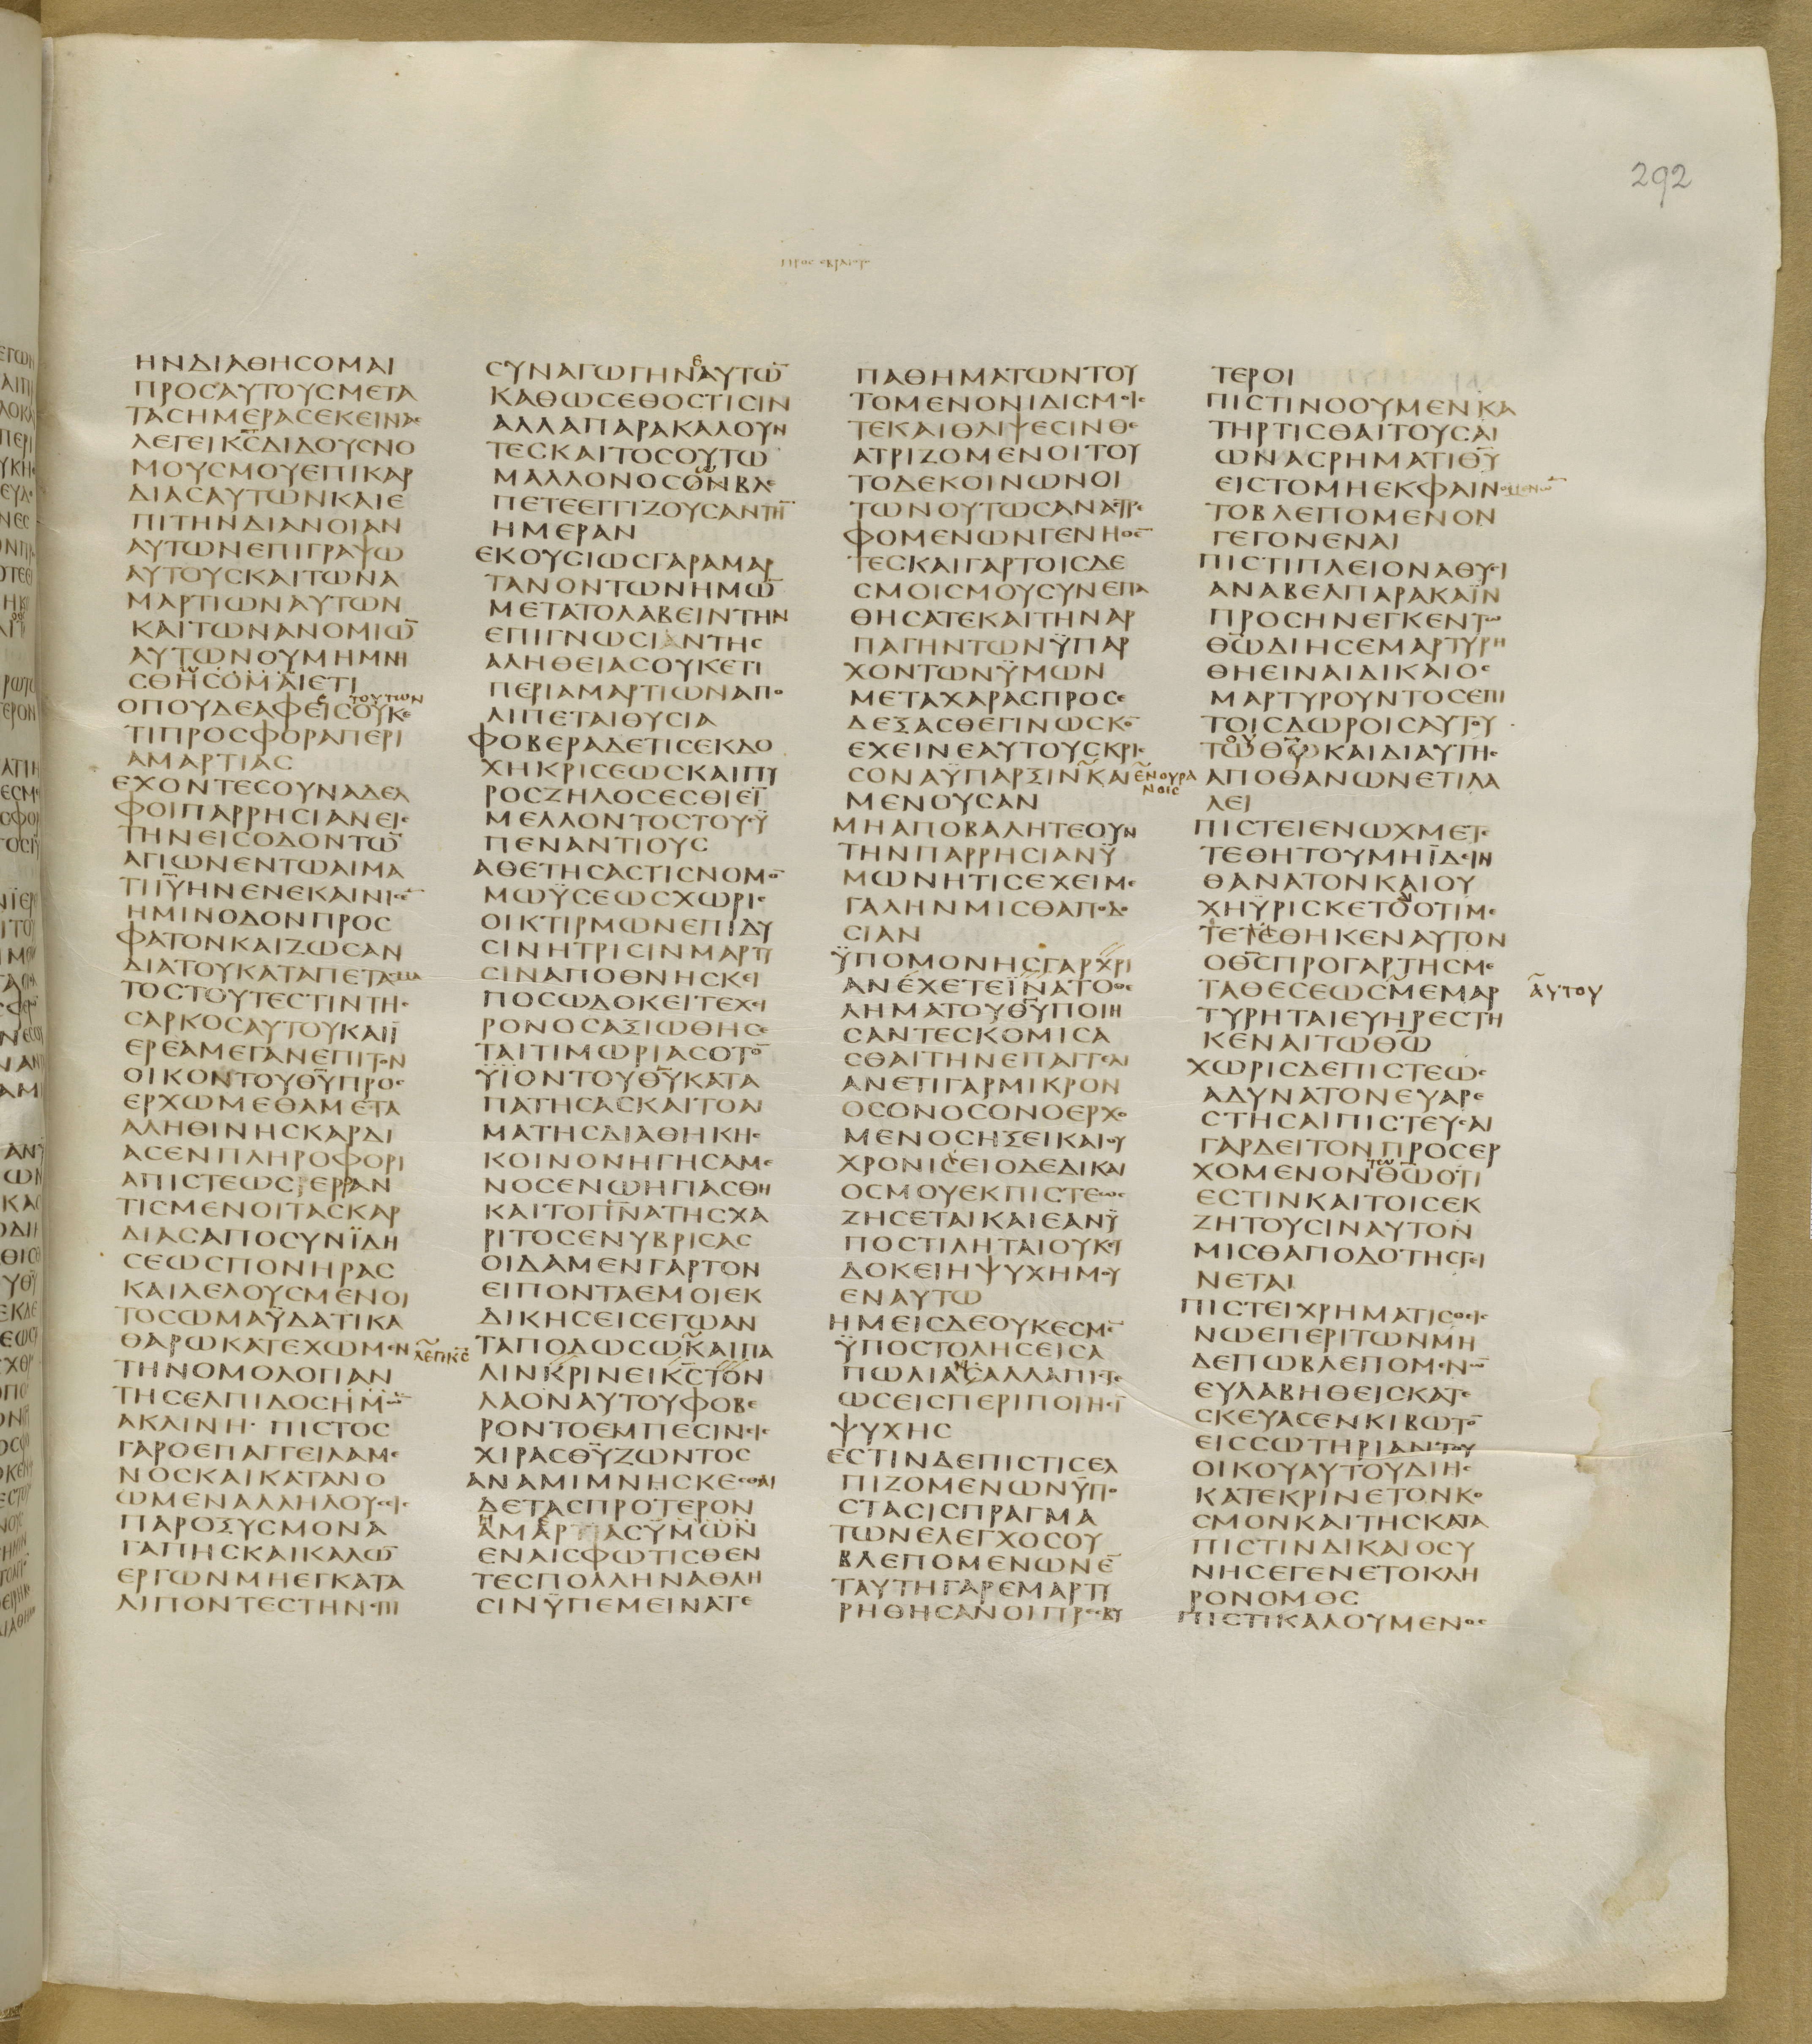 292
ΠΡΟΣ ΕΒΡΑΙΟΥΣ
ΗΝΔΙΑΘΗϹΟΜΑΙ
ΠΡΟϹΑΥΤΟΥϹΜΕΤΑ
ΤΑϹΗΜΕΡΑϹΕΚΕΙΝΑϹ
ΛΕΓΕΙΚ̅Ϲ̅ΔΙΔΟΥϹΝΟ
ΜΟΥϹΜΟΥΕΠΙΚΑΡ
ΔΙΑϹΑΥΤΩΝΚΑΙΕ
ΠΙΤΗΝΔΙΑΝΟΙΑΝ
ΑΥΤΩΝΕΠΙΓΡΑΨΩ
ΑΥΤΟΥϹΚΑΙΤΩΝΑ
ΜΑΡΤΙΩΝΑΥΤΩΝ
ΚΑΙΤΩΝΑΝΟΜΙΩ̅
ΑΥΤΩΝΟΥΜΗΜΝΗ
ϹΘΗϹΟΜΑΙΕΤΙ
ΟΠΟΥΔΕΑΦΕϹΙϹΤΟΥΤΩΝΟΥΚΕ
ΤΙΠΡΟϹΦΟΡΑΠΕΡΙ
ΑΜΑΡΤΙΑϹ
ΕΧΟΝΤΕϹΟΥΝΑΔΕΛ
ΦΟΙΠΑΡΡΗϹΙΑΝΕΙϹ
ΤΗΝΕΙϹΟΔΟΝΤΩ̅
ΑΓΙΩΝΕΝΤΩΑΙΜΑ
ΤΙΙ̅Υ̅ΗΝΕΝΕΚΑΙΝΙϹΕ̅
ΗΜΙΝΟΔΟΝΠΡΟϹ
ΦΑΤΟΝΚΑΙΖΩϹΑΝ
ΔΙΑΤΟΥΚΑΤΑΠΕΤΑϹΜΑ
ΤΟϹΤΟΥΤΕϹΤΙΝΤΗϹ
ϹΑΡΚΟϹΑΥΤΟΥΚΑΙΪ
ΕΡΕΑΜΕΓΑΝΕΠΙΤΟΝ
ΟΙΚΟΝΤΟΥΘ̅Υ̅ΠΡΟϹ
ΕΡΧΩΜΕΘΑΜΕΤΑ
ΑΛΗΘΙΝΗϹΚΑΡΔΙ
ΑϹΕΝΠΛΗΡΟΦΟΡΙ
ΑΠΙϹΤΕΩϹΡΕΡΑΝ
ΤΙϹΜΕΝΟΙΤΑϹΚΑΡ
ΔΙΑϹΑΠΟϹΥΝΪΔΗ
ϹΕΩϹΠΟΝΗΡΑϹ
ΚΑΙΛΕΛΟΥϹΜΕΝΟΙ
ΤΟϹΩΜΑΫΔΑΤΙΚΑ
ΘΑΡΩΚΑΤΕΧΩΜΕΝ
ΤΗΝΟΜΟΛΟΓΙΑΝ
ΤΗϹΕΛΠΙΔΟϹΗΜΩ̅
ΑΚΛΙΝΗ· ΠΙϹΤΟϹ
ΓΑΡΟΕΠΑΓΓΕΙΛΑΜΕ
ΝΟϹΚΑΙΚΑΤΑΝΟ
ΩΜΕΝΑΛΛΗΛΟΥϹΕΙϹ
ΠΑΡΟΞΥϹΜΟΝΑ
ΓΑΠΗϹΚΑΙΚΑΛΩ̅
ΕΡΓΩΝΜΗΕΓΚΑΤΑ
ΛΙΠΟΝΤΕϹΤΗΝΕΠΙ
ϹΥΝΑΓΩΓΗΝΕΑΥΤΩ̅
ΚΑΘΩϹΕΘΟϹΤΙϹΙΝ
ΑΛΛΑΠΑΡΑΚΑΛΟΥΝ
ΤΕϹΚΑΙΤΟϹΟΥΤΩ
ΜΑΛΛΟΝΟϹΟΝΒΛΕ
ΠΕΤΕΕΓΓΙΖΟΥϹΑΝΤΗ̅
ΗΜΕΡΑΝ
ΕΚΟΥϹΙΩϹΓΑΡΑΜΑΡ
ΤΑΝΟΝΤΩΝΗΜΩ̅
ΜΕΤΑΤΟΛΑΒΕΙΝΤΗΝ
ΕΠΙΓΝΩϹΙΑΝΤΗϹ
ΑΛΗΘΕΙΑϹΟΥΚΕΤΙ
ΠΕΡΙΑΜΑΡΤΙΩΝΑΠΟ
ΛΙΠΕΤΑΙΘΥϹΙΑ
ΦΟΒΕΡΑΔΕΤΙϹΕΚΔΟ
ΧΗΚΡΙϹΕΩϹΚΑΙΠΥ
ΡΟϹΖΗΛΟϹΕϹΘΙΕΙ̅
ΜΕΛΛΟΝΤΟϹΤΟΥϹΫ
ΠΕΝΑΝΤΙΟΥϹ
ΑΘΕΤΗϹΑϹΤΙϹΝΟΜΟ̅
ΜΩΫϹΕΩϹΧΩΡΙϹ
ΟΙΚΤΙΡΜΩΝΕΠΙΔΥ
ϹΙΝΗΤΡΙϹΙΝΜΑΡΤΥ
ϹΙΝΑΠΟΘΝΗϹΚΕΙ
ΠΟϹΩΔΟΚΕΙΤΕΧΕΙ
ΡΟΝΟϹΑΞΙΩΘΗϹΕ
ΤΑΙΤΙΜΩΡΙΑϹΟΤΟ̅
ΫΪΟΝΤΟΥΘ̅Υ̅ΚΑΤΑ
ΠΑΤΗϹΑϹΚΑΙΤΟΑΙ
ΜΑΤΗϹΔΙΑΘΗΚΗϹ
ΚΟΙΝΟΝΗΓΗϹΑΜΕ
ΝΟϹΕΝΩΗΓΙΑϹΘΗ
ΚΑΙΤΟΠ̅Ν̅ΑΤΗϹΧΑ
ΡΙΤΟϹΕΝΥΒΡΙϹΑϹ
ΟΙΔΑΜΕΝΓΑΡΤΟΝ
ΕΙΠΟΝΤΑΕΜΟΙΕΚ
ΔΙΚΗϹΕΙϹΕΓΩΑΝ
ΛΕΓΙΚ̅Ϲ̅
ΤΑΠΟΔΩϹΩΚΑΙΠΑ
ΛΙΝΚΡΙΝΕΙΚ̅Ϲ̅ΤΟΝ
ΛΑΟΝΑΥΤΟΥΦΟΒΕ
ΡΟΝΤΟΕΜΠΕϹΙΝΕΙϹ
ΧΙΡΑϹΘ̅Υ̅ΖΩΝΤΟϹ
ΑΝΑΜΙΜΝΗϹΚΕϹΘΑΙ
ΔΕΤΑϹΠΡΟΤΕΡΟΝ
ΑΜΑΡΤΙΑϹΫΜΩΝ
ΕΝΑΙϹΦΩΤΙϹΘΕΝ
ΤΕϹΠΟΛΛΗΝΑΘΛΗ
ϹΙΝΫΠΕΜΕΙΝΑΤΕ
ΠΑΘΗΜΑΤΩΝΤΟΥ
ΤΟΜΕΝΟΝΙΔΙϹΜΟΙϹ
ΤΕΚΑΙΘΛΙΨΕϹΙΝΘΕ
ΑΤΡΙΖΟΜΕΝΟΙΤΟΥ
ΤΟΔΕΚΟΙΝΩΝΟΙ
ΤΩΝΟΥΤΩϹΑΝΑϹΤΡΕ
ΦΟΜΕΝΩΝΓΕΝΗΘΕ̅
ΤΕϹΚΑΙΓΑΡΤΟΙϹΔΕ
ϹΜΟΙϹΜΟΥϹΥΝΕΠΑ
ΘΗϹΑΤΕΚΑΙΤΗΝΑΡ
ΠΑΓΗΝΤΩΝΫΠΑΡ
ΧΟΝΤΩΝΫΜΩΝ
ΜΕΤΑΧΑΡΑϹΠΡΟϹΕ
ΔΕΞΑϹΘΕΓΙΝΩϹΚΟ̅
ΕΧΕΙΝΕΑΥΤΟΥϹΚΡΙϹ
ϹΟΝΑΫΠΑΡΞΙΝΚΑΙΕΝΟΥΡΑ
ΝΟΙϹ
ΜΕΝΟΥϹΑΝ
ΜΗΑΠΟΒΑΛΗΤΕΟΥΝ
ΤΗΝΠΑΡΡΗϹΙΑΝΫ
ΜΩΝΗΤΙϹΕΧΕΙΜΕ
ΓΑΛΗΝΜΙϹΘΑΠΟΔΟ
ϹΙΑΝ
ΫΠΟΜΟΝΗϹΓΑΡΧΡΙ
ΑΝΕΧΕΤΕΪΝΑΤΟΘΕ
ΛΗΜΑΤΟΥΘ̅Υ̅ΠΟΙΗ
ϹΑΝΤΕϹΚΟΜΙϹΑ
ϹΘΑΙΤΗΝΕΠΑΓΓΕΛΙ
ΑΝΕΤΙΓΑΡΜΙΚΡΟΝ
ΟϹΟΝΟϹΟΝΟΕΡΧΟ
ΜΕΝΟϹΗΞΕΙΚΑΙΟΥ
ΧΡΟΝΙϹΕΙΟΔΕΔΙΚΑΙ
ΟϹΜΟΥΕΚΠΙϹΤΕΩϹ
ΖΗϹΕΤΑΙΚΑΙΕΑΝΫ
ΠΟϹΤΙΛΗΤΑΙΟΥΚΕΥ
ΔΟΚΕΙΗΨΥΧΗΜΟΥ
ΕΝΑΥΤΩ
ΗΜΕΙϹΔΕΟΥΚΕϹΜΕ̅
ΫΠΟϹΤΟΛΗϹΕΙϹΑ
ΠΩΛΙΑΝΑΛΛΑΠΙϹΤΕ
ΩϹΕΙϹΠΕΡΙΠΟΙΗϹΙ̅
ΨΥΧΗϹ
ΕϹΤΙΝΔΕΠΙϹΤΙϹΕΛ
ΠΙΖΟΜΕΝΩΝΫΠΟ
ϹΤΑϹΙϹΠΡΑΓΜΑ
ΤΩΝΕΛΕΓΧΟϹΟΥ
ΒΛΕΠΟΜΕΝΩΝΕ̅
ΤΑΥΤΗΓΑΡΕΜΑΡΤΥ
ΡΗΘΗϹΑΝΟΙΠΡΕϹΒΥ
ΤΕΡΟΙ
ΠΙϹΤΙΝΟΟΥΜΕΝΚΑ
ΤΗΡΤΙϹΘΑΙΤΟΥϹΑΙ
ΩΝΑϹΡΗΜΑΤΙΘ̅Υ̅
ΕΙϹΤΟΜΗΕΚΦΑΙΝΟΜΕΝΩ̅
ΤΟΒΛΕΠΟΜΕΝΟΝ
ΓΕΓΟΝΕΝΑΙ
ΠΙϹΤΙΠΛΕΙΟΝΑΘΥϹΙ
ΑΝΑΒΕΛΠΑΡΑΚΑΪΝ
ΠΡΟϹΗΝΕΓΚΕΝΤΩ
Θ̅Ω̅ΔΙΗϹΕΜΑΡΤΥΡΗ
ΘΗΕΙΝΑΙΔΙΚΑΙΟϹ
ΜΑΡΤΥΡΟΥΝΤΟϹΕΠΙ
ΤΟΙϹΔΩΡΟΙϹΑΥΤΟΥ
ΤΩΘ̅Ω̅ΚΑΙΔΙΑΥΤΗϹ
ΑΠΟΘΑΝΩΝΕΤΙΛΑ
ΛΕΙ
ΠΙϹΤΕΙΕΝΩΧΜΕΤΕ
ΤΕΘΗΤΟΥΜΗΪΔΕΙΝ
ΘΑΝΑΤΟΝΚΑΙΟΥ
ΧΗΫΡΙϹΚΕΤΟΔΙΟΤΙΜΕ
ΤΕΤΕΘΗΚΕΝΑΥΤΟΝ
ΟΘ̅Ϲ̅ΠΡΟΓΑΡΤΗϹΜΕ
ΤΑΘΕϹΕΩϹΜΕΜΑΡ ΑΥΤΟΥ
ΤΥΡΗΤΑΙΕΥΗΡΕϹΤΗ
ΚΕΝΑΙΤΩΘ̅Ω̅
ΧΩΡΙϹΔΕΠΙϹΤΕΩϹ
ΑΔΥΝΑΤΟΝΕΥΑΡΕ
ϹΤΗϹΑΙΠΙϹΤΕΥϹΑΙ
ΓΑΡΔΕΙΤΟΝΠΡΟϹΕΡ
ΧΟΜΕΝΟΝΤΩΘ̅Ω̅ΟΤΙ
ΕϹΤΙΝΚΑΙΤΟΙϹΕΚ
ΖΗΤΟΥϹΙΝΑΥΤΟΝ
ΜΙϹΘΑΠΟΔΟΤΗϹΓΕΙ
ΝΕΤΑΙ
ΠΙϹΤΕΙΧΡΗΜΑΤΙϹΘΕΙϹ
ΝΩΕΠΕΡΙΤΩΝΜΗ
ΔΕΠΩΒΛΕΠΟΜΕΝΩ̅
ΕΥΛΑΒΗΘΕΙϹΚΑΤΕ
ϹΚΕΥΑϹΕΝΚΙΒΩΤΟ̅
ΕΙϹϹΩΤΗΡΙΑΝΤΟΥ
ΟΙΚΟΥΑΥΤΟΥΔΙΗϹ
ΚΑΤΕΚΡΙΝΕΤΟΝΚΟ
ϹΜΟΝΚΑΙΤΗϹΚΑΤΑ
ΠΙϹΤΙΝΔΙΚΑΙΟϹΥ
ΝΗϹΕΓΕΝΕΤΟΚΛΗ
ΡΟΝΟΜΟϹ
ΠΙϹΤΙΚΑΛΟΥΜΕΝΟϹ